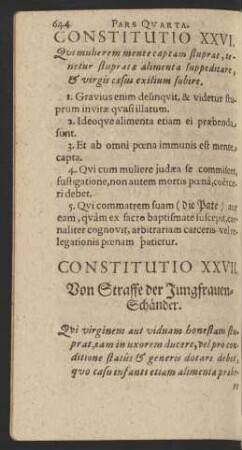 644 PARS QVARTA.
CONSTITUTIO XXVI.
Qvi mulierem mente captam stuprat, te-
netur stupratæ alimenta suppeditare,
& vergit casu exilium subire.
1. Gravius enim delinqvit, & videtur stu-
prum invitæ quasi illatum.
2. Ideoqve alimenta etiam ei præbenda
sunt.
3. Et ab omni pœna immunis est mente
capta.
4. Qvi cum muliere judæa se commiscet,
fustigatione, non autem mortis pœnâ, coërce-
ri debet.
5. Qvi commatrem suam (die Pate) aut
eam, qvàm ex sacro baptismate suscepit, car-
naliter cognovit, arbitrariam carceris vel re-
legationis pœnam patietur.
CONSTITUTIO XXVII.
Von Straffe der Jungfrauen-
Schänder.
Qvi virginem aut viduam honestam stu-
prat, eam in uxorem ducere, vel pro con-
ditione statûs & generis dotare debet,
quo casu infanti etiam alimenta præbe-